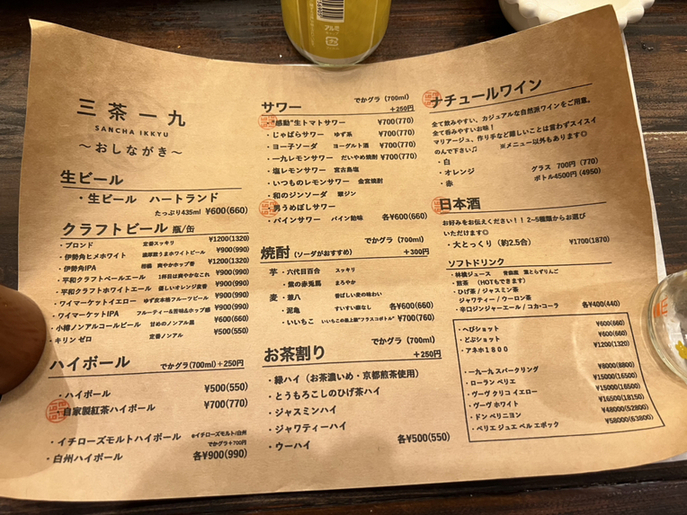 三茶一九
SANCHA IKKYU
〜おしながき〜
生ビール
・生ビール ハートランド
たっぷり435ml ¥600(660)
クラフトビール 瓶/缶
・ブロンド 定番スッキリ ¥1200(1320)
・伊勢角ヒメホワイト ¥900(990)
・伊勢角IPA ¥900(990)
・平和クラフトペールエール 1杯目は爽やかなこれ ¥900(990)
・平和クラフトホワイトエール 優しいオレンジ変香 ¥900(990)
・ワイマーケットイエロー ゆず皮本格フルーツビール ¥900(990)
・ワイマーケットIPA フルーティー&苦味ホップ感 ¥900(990)
・小樽ノンアルコールビール 甘めのノンアル ¥600(660)
・キリン ゼロ 定番ノンアル ¥500(550)
ハイボール でかグラ(700ml)+250円
・ハイボール ¥500(550)
・自家製紅茶ハイボール ¥700(770)
・イチローズモルトハイボール ※イチローズモルト/白州
でかグラ+700円
・白州ハイボール 各¥900(990)
サワー でかグラ (700ml)
+250円
・"感動"生トマトサワー ¥700(770)
・じゃばらサワー ゆず系 ¥700(770)
・ヨー子ソーダ ヨーグルト酒 ¥700(770)
・一九レモンサワー だいやめ焼酎 ¥700(770)
・塩レモンサワー 宮古島塩
・いつものレモンサワー 金宮焼酎
・和のジンソーダ 翠ジン
・男うめぼしサワー
・パインサワー パイン飴味 各¥600(660)
焼酎 (ソーダがおすすめ) でかグラ (700ml)
+300円
芋・六代目百合 スッキリ
・紫の赤兎馬 まろやか
麦・兼八 香ばしい麦の味わい
・泥亀 すいすい癖なし 各¥600(660)
・いいちこ いいちこの最上級"フラスコボトル" ¥700(760)
お茶割り でかグラ (700ml)
+250円
・緑ハイ(お茶濃いめ・京都煎茶使用)
・とうもろこしのひげ茶ハイ
・ジャスミンハイ
・ジャワティーハイ
・ウーハイ 各¥500(550)
ナチュールワイン
全て飲みやすい、カジュアルな自然派ワインをご用意。
全て呑みやすいお味!
マリアージュ、作り手など難しいことは言わずスイスイ
のんで下さい♫ ※メニュー以外もあります◎
・白
・オレンジ グラス 700円 (770)
・赤 ボトル4500円 (4950)
日本酒
お好みをお伝えください!!2~5種類からお選び
いただけます◎
・大とっくり (約2.5合) ¥1700(1870)
ソフトドリンク
・林檎ジュース 青森産 葉とらずりんご
・煎茶 (HOTもできます)
・ひげ茶/ジャスミン茶
ジャワティー/ウーロン茶
・辛口ジンジャーエール/コカ・コーラ 各¥400(440)
・へびショット ¥600(660)
・どぶショット ¥600(660)
・アネホ1800 ¥1200(1320)
・一九一九 スパークリング ¥8000(8800)
・ローラン ペリエ ¥15000(16500)
・ヴーヴ クリコ イエロー ¥15000(16500)
・ヴーヴ ホワイト ¥16500(18150)
・ドン ペリニヨン ¥48000(52800)
・ペリエ ジュエ ベル エポック ¥58000(63800)
アルミ